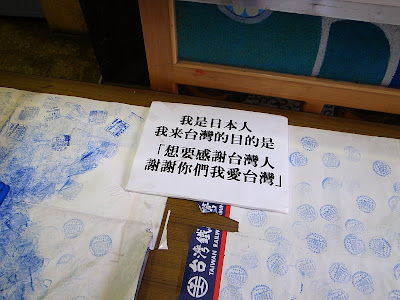 我是日本人
我来台灣的目的是
「想要感謝台灣人
謝謝你們我愛台灣」
台灣鐵
TAIWAN RAILW